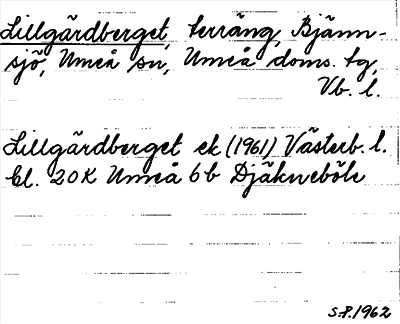 Lillgärdberget, terräng, Bjänn-
sjö, Umeå sn, Umeå doms. tg,
Vb. l.
Lillgärdberget ek (1961) Västerb. l.
bl. 20K Umeå 6b Djäkneböle
S.P. 1962